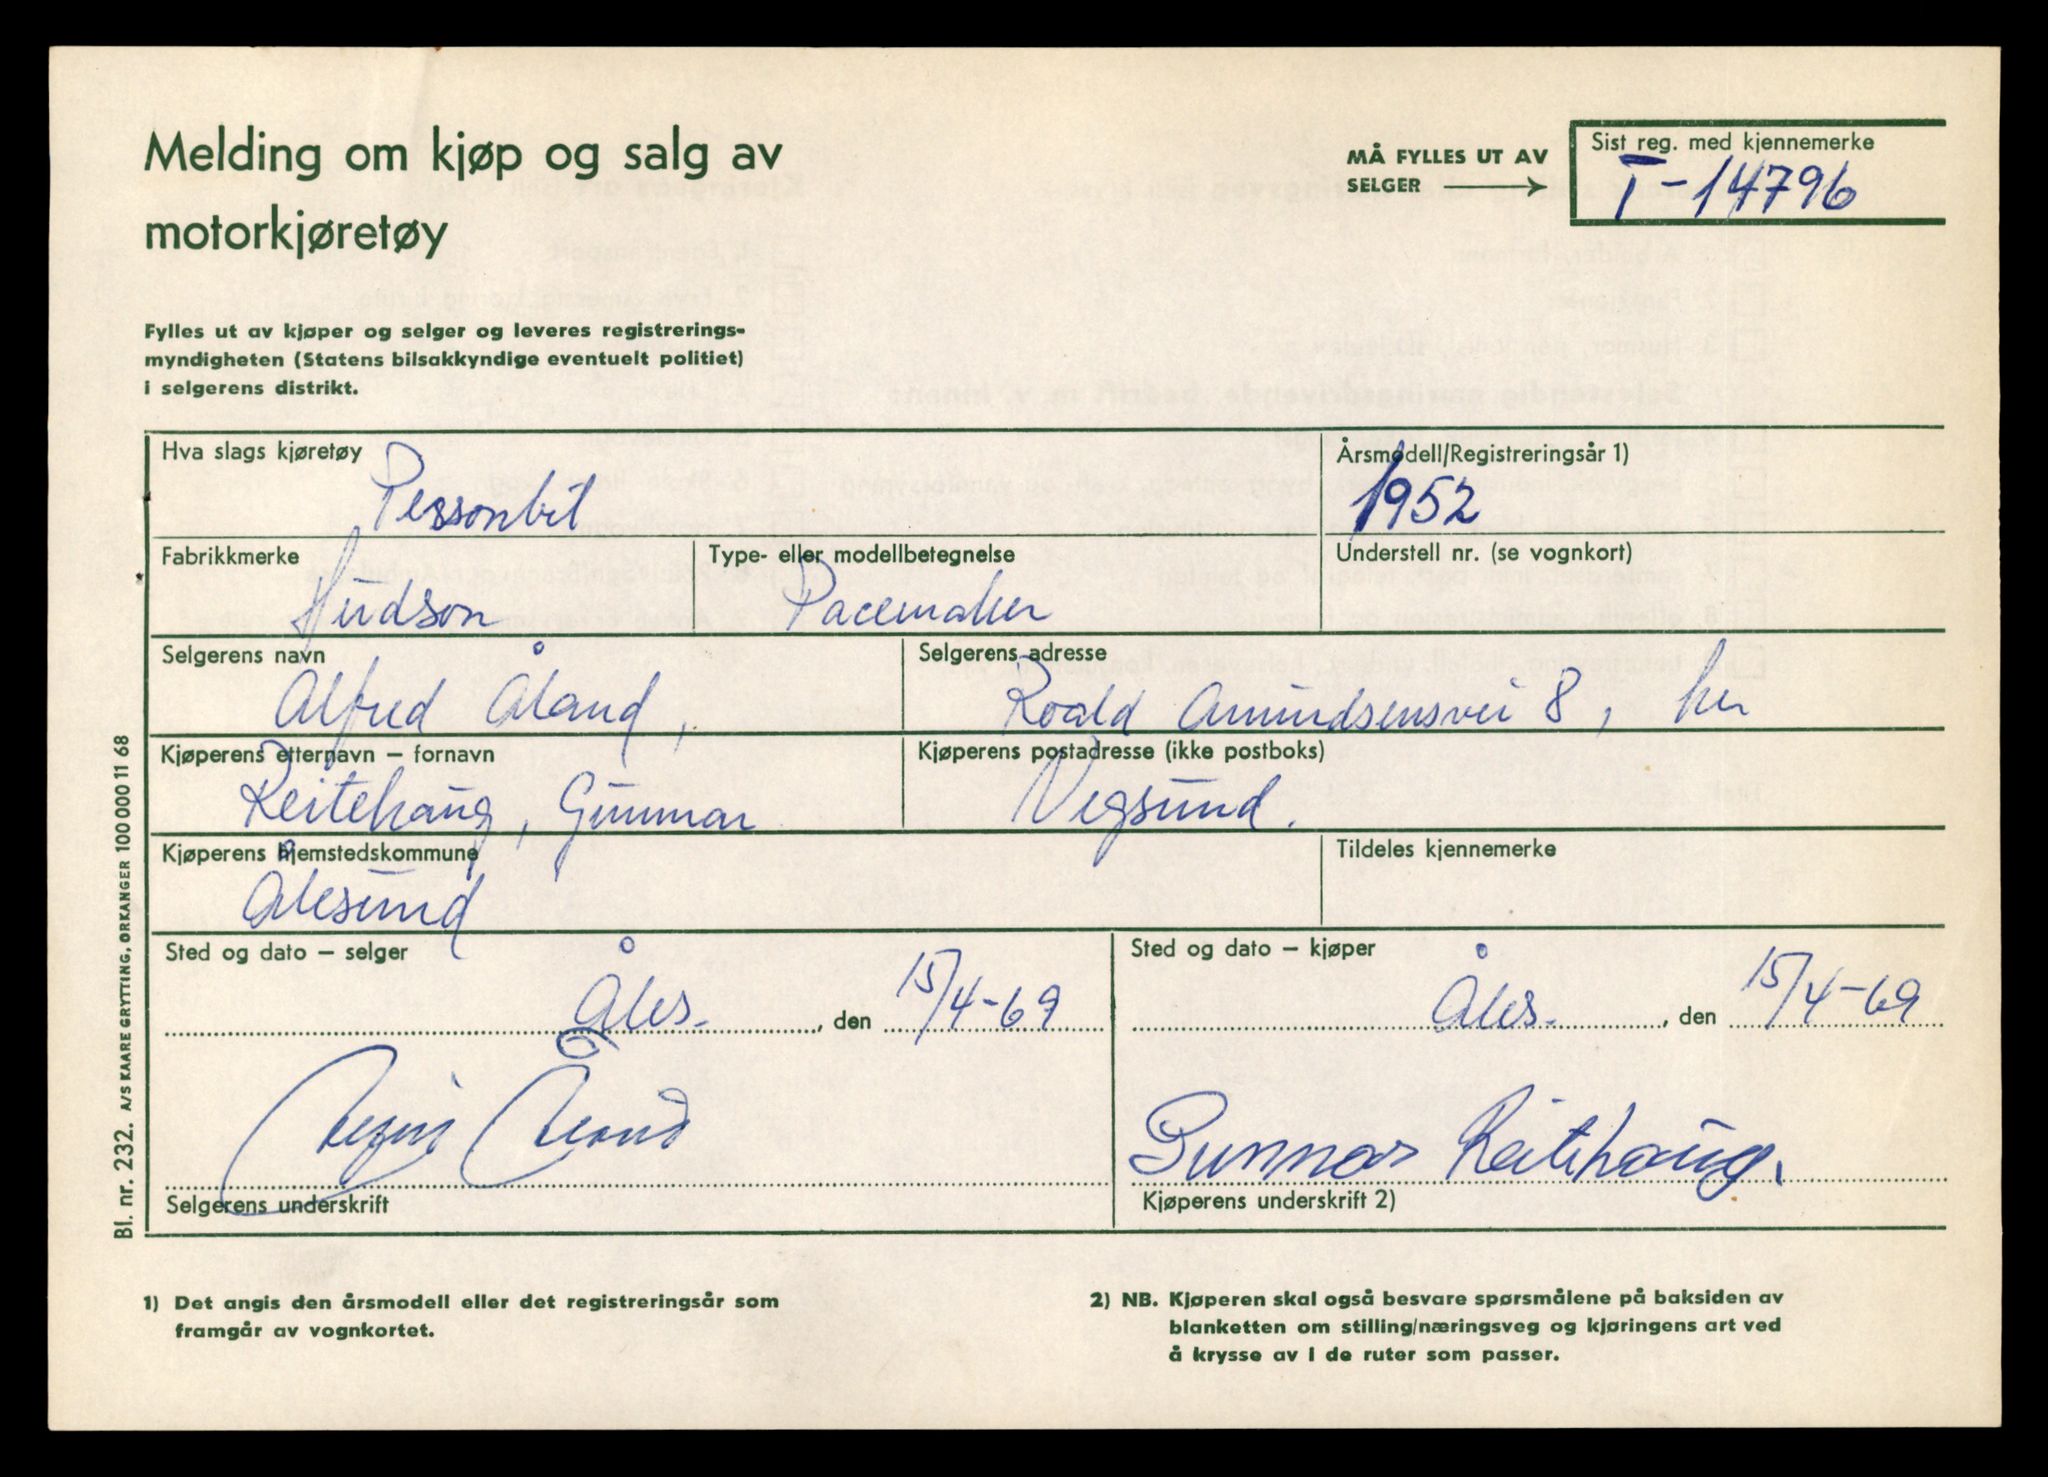 Melding om kjøp og salg av
motorkjøretøy
MÅ FYLLES UT AV
SELGER
Sist reg. med kjennemerke
T-14796
Fylles ut av kjøper og selger og leveres registrerings-
myndigheten (Statens bilsakkyndige eventuelt politiet)
i selgerens distrikt.
Hva slags kjøretøy
Personbil
Årsmodell/Registreringsår 1)
1952
Fabrikkmerke
Hudson
Type- eller modellbetegnelse
Pacemaker
Understell nr. (se vognkort)
Selgerens navn
Alfred Åland,
Selgerens adresse
Roald Amundsensvei 8, her
Kjøperens etternavn – fornavn
Reitehaug, Gunnar
Kjøperens postadresse (ikke postboks)
Vegsund.
Kjøperens hjemstedskommune
Ålesund
Tildeles kjennemerke
Sted og dato – selger
Åles. , den 15/4-69
Sted og dato – kjøper
Åles. , den 15/4-69
Åland
Selgerens underskrift
Gunnar Reitehaug.
Kjøperens underskrift 2)
Bl. nr. 232. A/S KAARE GRYTTING, ORKANGER 100 000 11 68
1) Det angis den årsmodell eller det registreringsår som
framgår av vognkortet.
2) NB. Kjøperen skal også besvare spørsmålene på baksiden av
blanketten om stilling/næringsveg og kjøringens art ved
å krysse av i de ruter som passer.